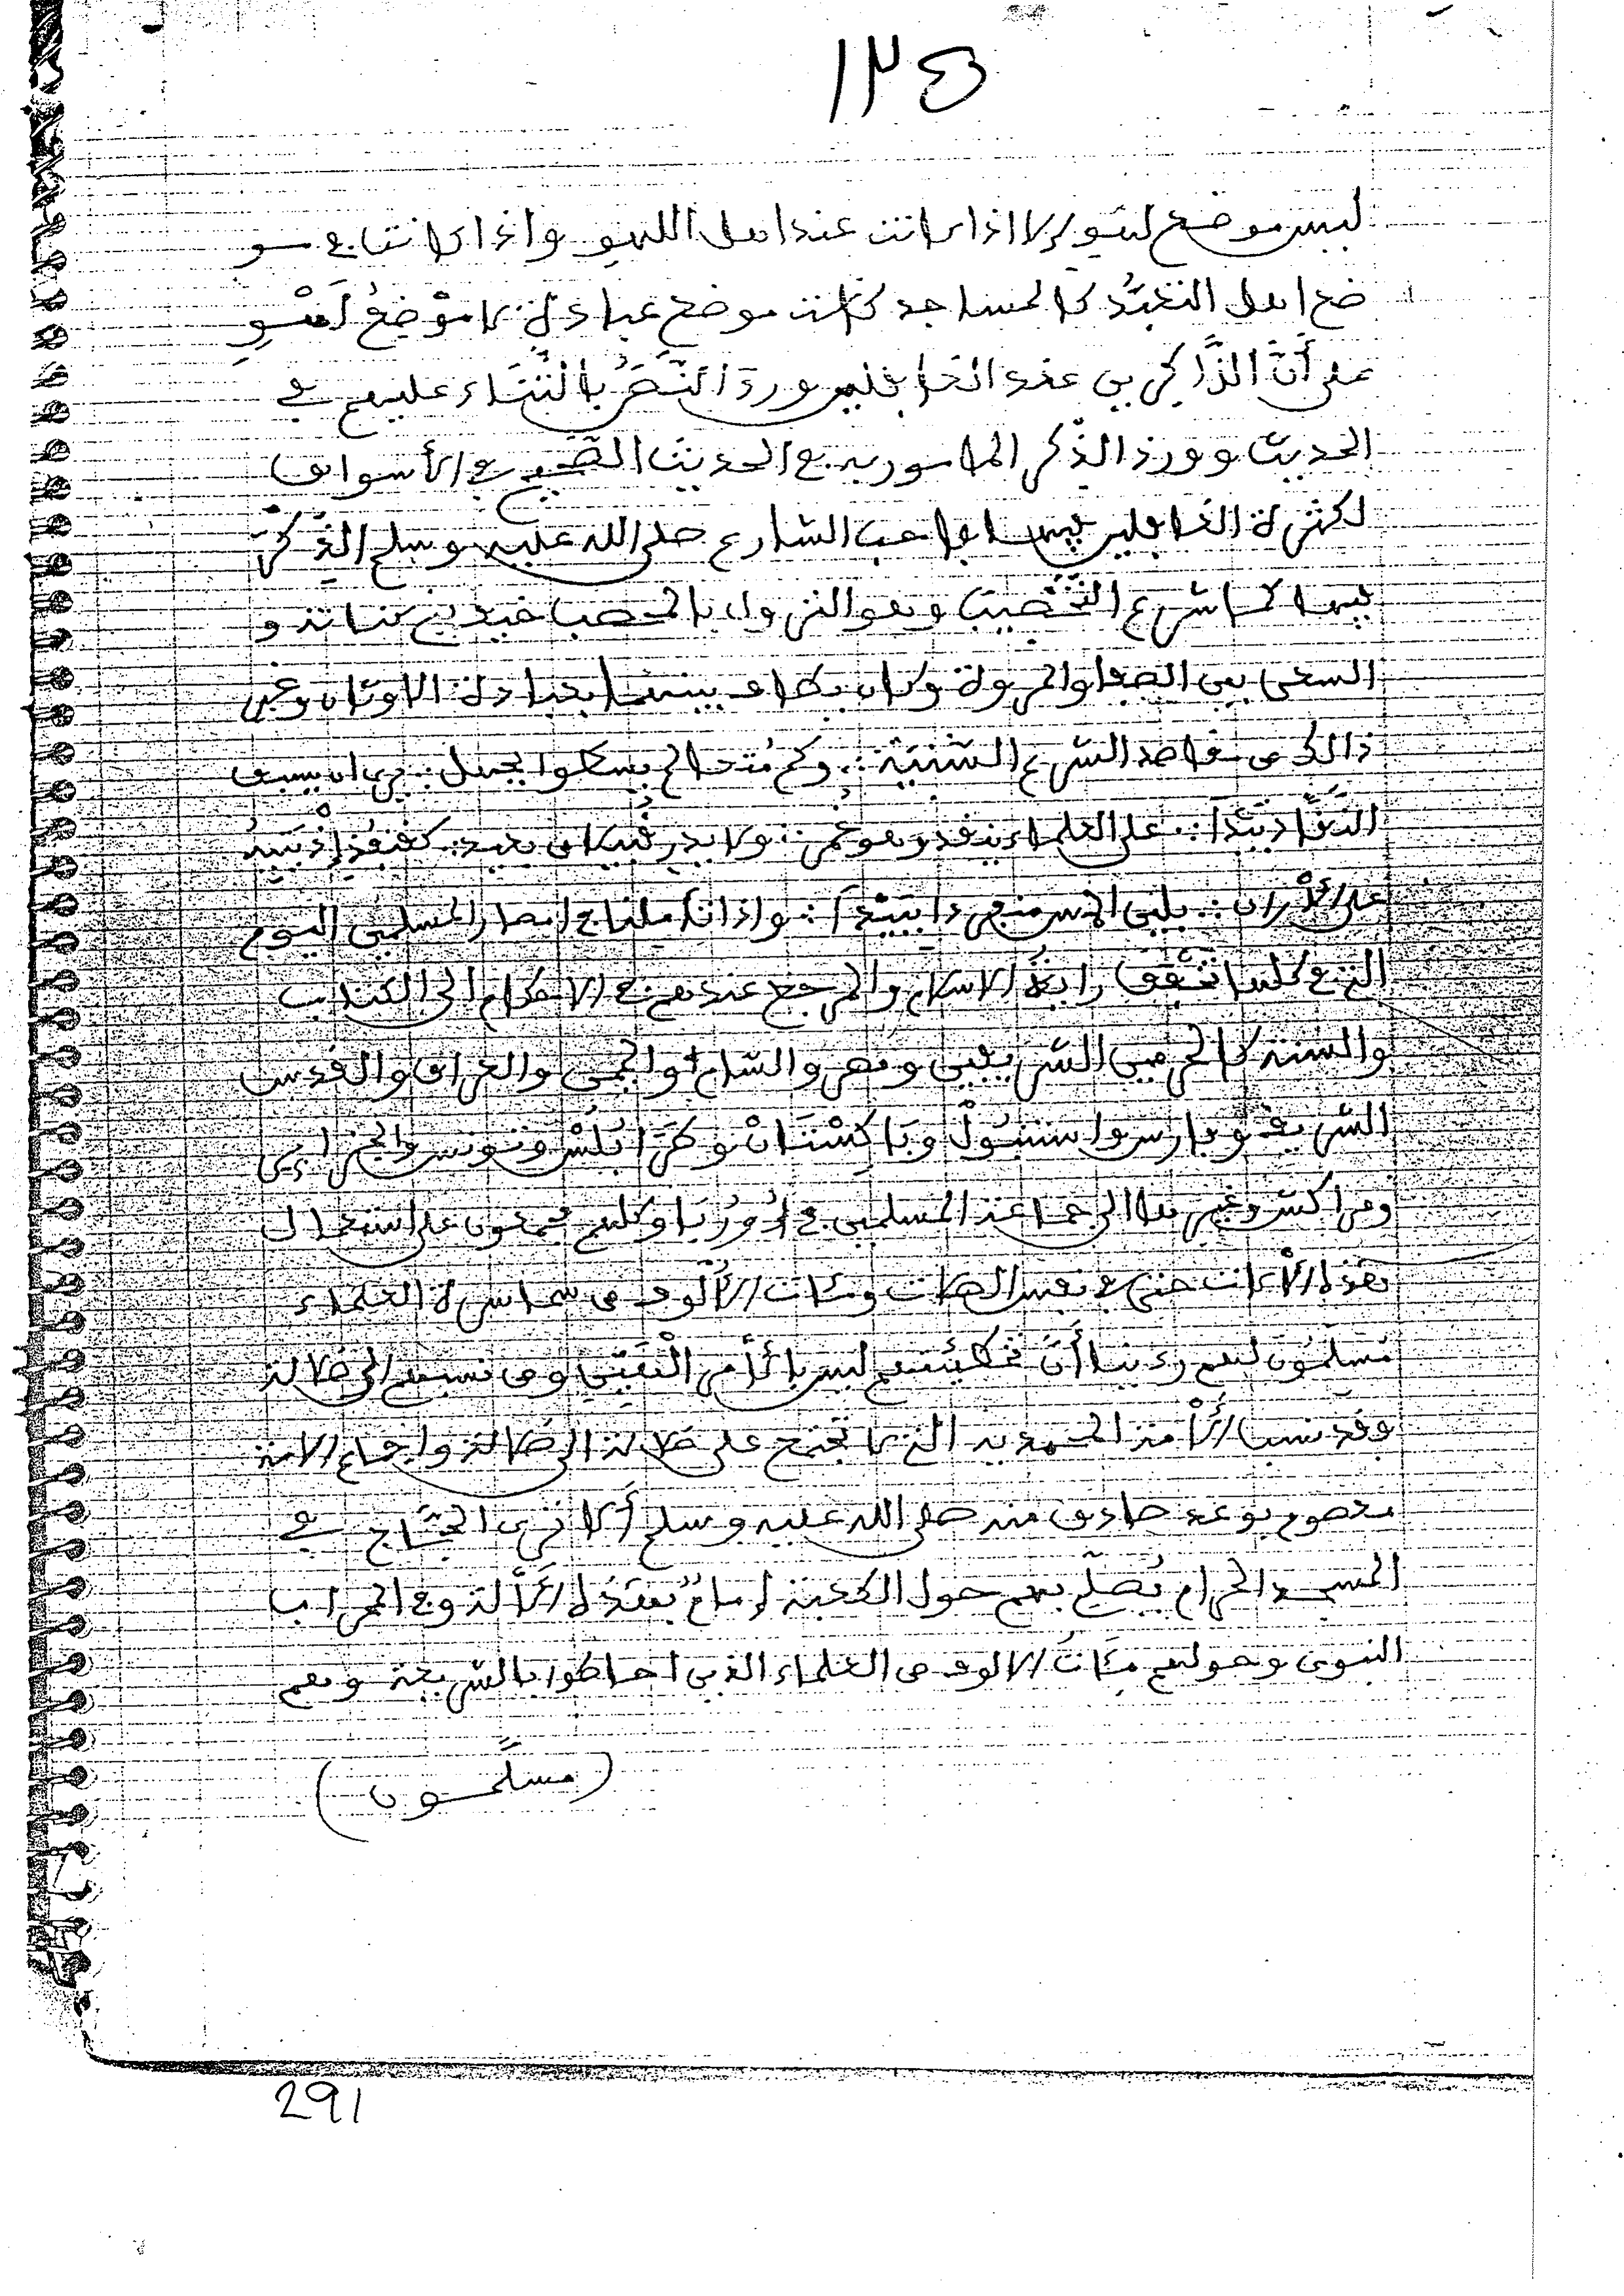 ١٣٤
ليس موضع لهو إلا اذا كانت عند اهل اللهو واذا كانت في مو
ضع اهل التعبُّد كالمساجد كانت موضع عبادة لا موْضِعُ لَهْوٍ
على أنَّ الذَّاكرين عند الغافلين ورد النَّصُّ بالثَّنَاء عليهم في
الحديث وورد الذّكر المامور به في الحديث الصَّحيح في الأسواق
لكثرة الغافلين فيها فاحب الشارع صلى الله عليه وسلم الذّكرَ
فيها كما شرع التَّحْصِيبَ وهو النزول بالمحصب خيف بني كنانة و
السعي بين الصفا والمروة وكان يطاف بينهما بعبادة الاوثان وغير
ذالك من مقاصد الشرع السَّنِيَّة ∴ وكم مُتحالم يسطوا بجهل ∴ يرى ان يسبق
على العلماء ينفد وهو غمر ∴ ولا يدر قبيلا من دبيد ∴
واذا تأملنا في امصار المسلمين اليوم
التي كلها تخْفِقُ رايةُ الاسلام والمرجع عندهم في الاحكام الى الكتاب
والسنة كالحرمين الشريفين ومصر والشام واليمن والعراق والقدس
الشريف وفارس واستنبُولْ وبَاكِسْتَانْ وكَرَابُلُسْ وتونس والجزاير
ومراكش وغيرها الى جماعة المسلمين في اُورُبَا وكلهم مجمعون على استعمال
هذه الألات حتى في نفس الصلات ومئات الألوف من سماسرة العلماء
مُسَلِّمُون لهم رءينا أنَّ تخطِئتهم ليس بالأمر الْهَيِّنِ ومن نسبهم الى ضلالة
وقد نسب الأُمة المحمدية التي لا تجتمع على ضلالة الى ضلالة واجماع الامة
معصوم بوعد صادق منه صلى الله عليه وسلم ألا ترى الحُجَّاج في
المسجد الحرام يُصلِّي بهم حول الكعبة إمامٌ بهذه الألة وفي المحراب
النبوي وحولهم مئاتُ الالوف من العلماء الذين احاطوا بالشريعة وهم
(مسلَّمون)
291